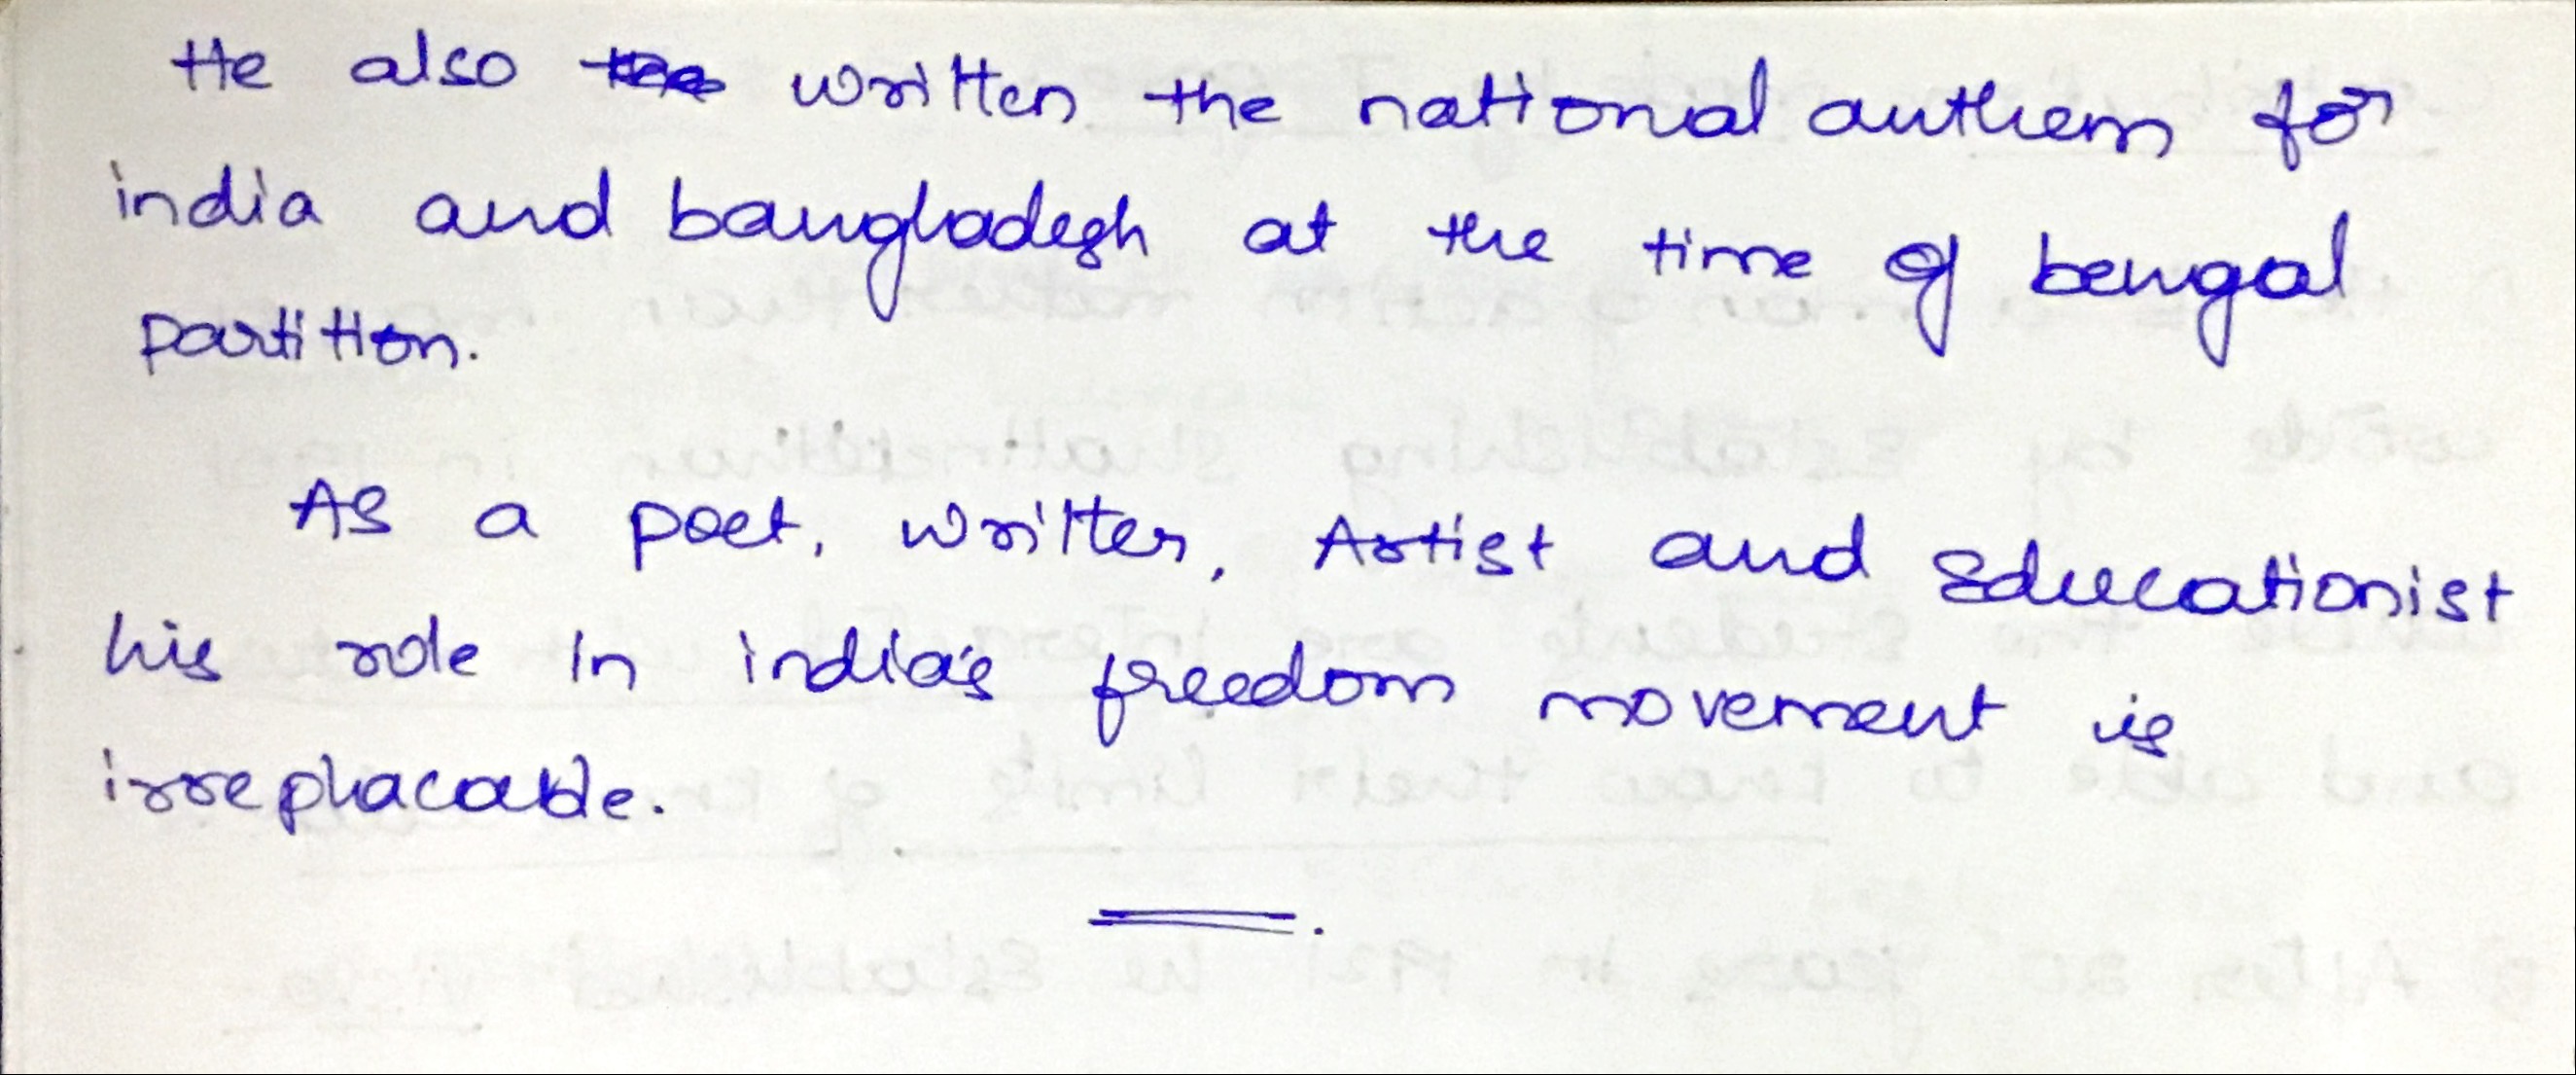 He also written the national anthem for
india and bangladesh at the time of bengal
partition.
As a poet, writter, Artist and Educationist
his role in india's freedom movement is
irreplacable.